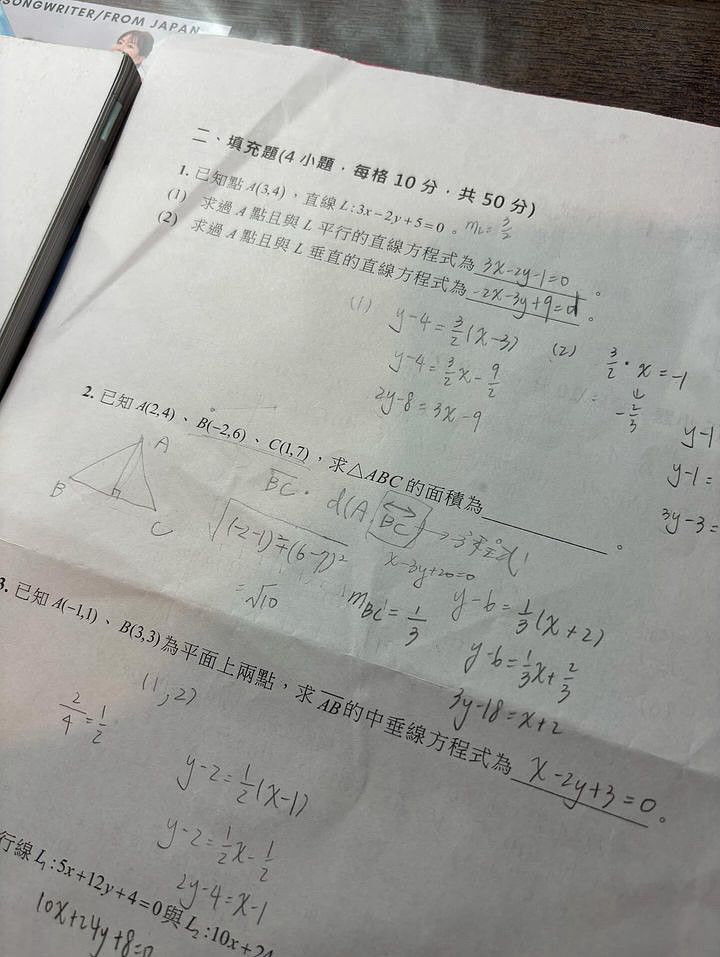 SONGWRITER/FROM JAPAN
二、填充題(4 小題，每格 10 分，共 50 分)
1. 已知點 A(3,4)、直線 L:3x−2y+5=0。 mL=3/2
(1) 求過 A 點且與 L 平行的直線方程式為 3x-2y-1=0 。
(2) 求過 A 點且與 L 垂直的直線方程式為 -2x-3y+9=0 。
(1) y-4=3/2(x-3)
y-4=3/2x-9/2
2y-8=3x-9
(2) 3/2·x=-1
↓
-2/3
y-1
y-1=
3y-3=
2. 已知 A(2,4)、B(−2,6)、C(1,7)，求△ABC 的面積為 。
A
B
C
BC·d(A BC)→求方程式
√(-2-1)²+(6-7)²
=√10
x-3y+20=0
mBC=1/3
y-6=1/3(x+2)
y-6=1/3x+2/3
3y-18=x+2
3. 已知 A(−1,1)、B(3,3) 為平面上兩點，求 AB 的中垂線方程式為 x-2y+3=0 。
(1,2)
2/4=1/2
y-2=1/2(x-1)
y-2=1/2x-1/2
2y-4=x-1
行線 L1:5x+12y+4=0 與 L2:10x+24
10x+24y+8=0